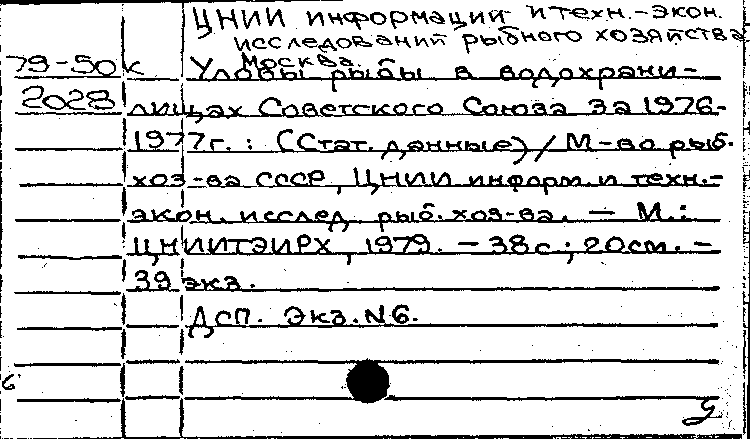 ЦНИИ информаций и техн.-экон.
исследований рыбного хозяйства
Москва.
79-50к Уловы рыбы в водохрани-
2028 лищах Советского Союза за 1976-
1977г. : (Стат. данные) / М-во рыб.
хоз-ва СССР, ЦНИИ информ. и техн.-
экон. исслед. рыб. хоз-ва. - М.:
ЦНИИТЭИРХ, 1979. - 38с.; 20см. -
39 экз.
Дсп. Экз. N6.
6